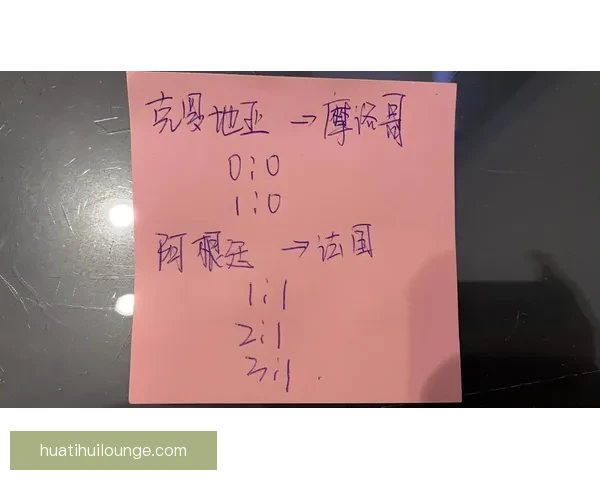 克罗地亚 → 摩洛哥
0:0
1:0
阿根廷 → 法国
1:1
2:1
3:1.
huatihuilounge.com